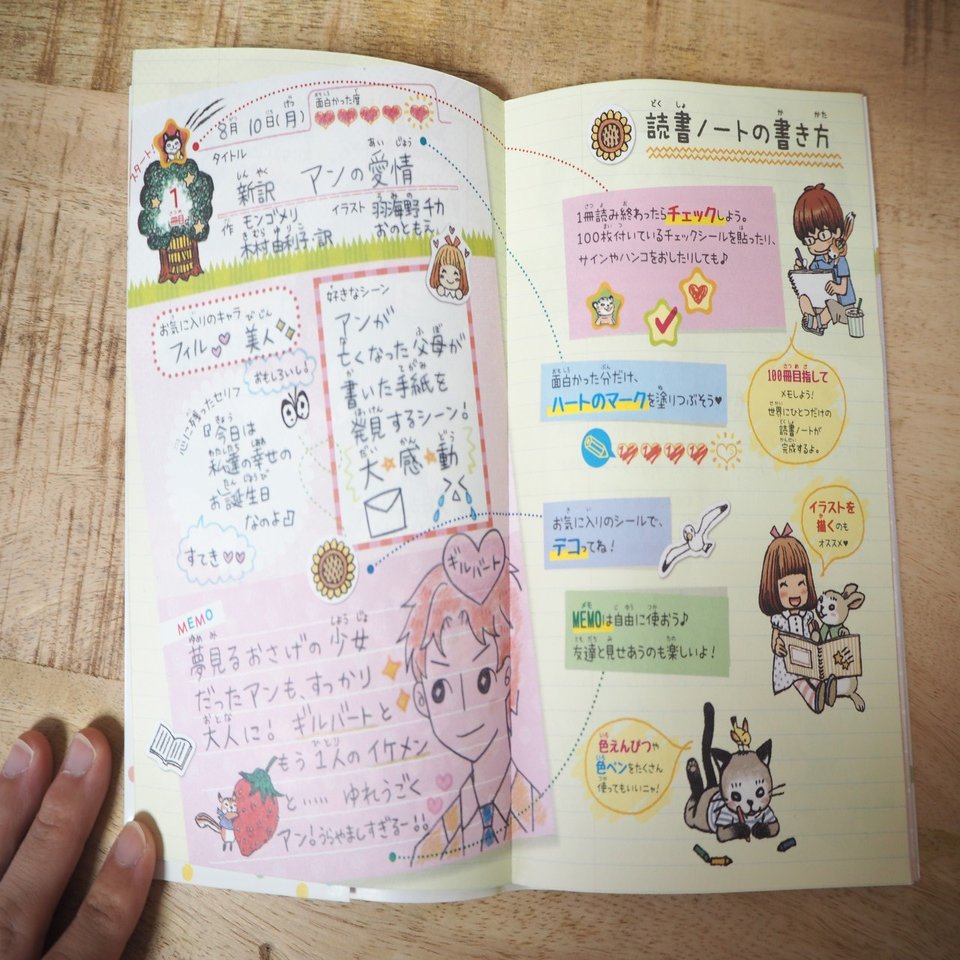 スタート
8月10日(月)
面白かった度
1
さつ
冊目
タイトル
新訳 アンの愛情
作 モンゴメリ イラスト 羽海野チカ
木村由利子・訳 おのともえ
お気に入りのキャラ
フィル 美人
おもしろいし!
心に残ったセリフ
『今日は
私達の幸せの
お誕生日
なのよ』
すてき
好きなシーン
アンが
亡くなった父母が
書いた手紙を
発見するシーン!
大感動
ギルバート
MEMO
夢見るおさげの少女
だったアンも、すっかり
大人に! ギルバートと
もう1人のイケメン
と‥‥‥ ゆれうごく
アン!うらやましすぎるー!!
読書ノートの書き方
1冊読み終わったらチェックしよう。
100枚付いているチェックシールを貼ったり、
サインやハンコをおしたりしても♪
100冊目指して
メモしよう!
世界にひとつだけの
読書ノートが
完成するよ。
面白かった分だけ、
ハートのマークを塗りつぶそう♥
お気に入りのシールで、
デコってね!
イラストを
描くのも
オススメ♥
MEMOは自由に使おう♪
友達と見せあうのも楽しいよ!
色えんぴつや
色ペンをたくさん
使ってもいいニャ!